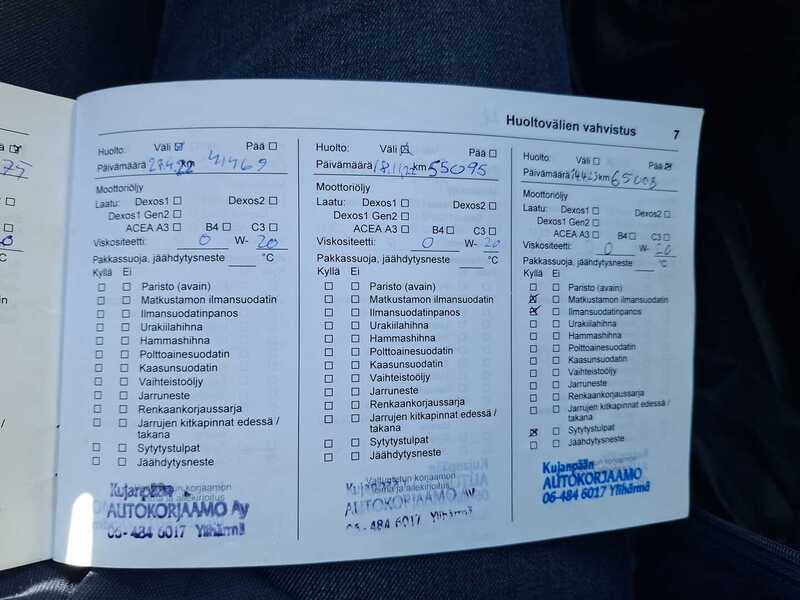 Huoltovälien vahvistus 7
Huolto: Väli ☑ Pää ☐
Päivämäärä 27.4.22 km 41469
Moottoriöljy
Laatu: Dexos1 ☐ Dexos2 ☐
Dexos1 Gen2 ☐
ACEA A3 ☐ B4 ☐ C3 ☐
Viskositeetti: 0 W- 20
Pakkassuoja, jäähdytysneste ____ °C
Kyllä Ei
☐ ☐ Paristo (avain)
☐ ☐ Matkustamon ilmansuodatin
☐ ☐ Ilmansuodatinpanos
☐ ☐ Urakiilahihna
☐ ☐ Hammashihna
☐ ☐ Polttoainesuodatin
☐ ☐ Kaasunsuodatin
☐ ☐ Vaihteistoöljy
☐ ☐ Jarruneste
☐ ☐ Renkaankorjaussarja
☐ ☐ Jarrujen kitkapinnat edessä /
takana
☐ ☐ Sytytystulpat
☐ ☐ Jäähdytysneste
Kujanpään
AUTOKORJAAMO Ay
06-484 6017 Ylihärmä
Huolto: Väli ☑ Pää ☐
Päivämäärä 18.11.22 km 55095
Moottoriöljy
Laatu: Dexos1 ☐ Dexos2 ☐
Dexos1 Gen2 ☐
ACEA A3 ☐ B4 ☐ C3 ☐
Viskositeetti: 0 W- 20
Pakkassuoja, jäähdytysneste ____ °C
Kyllä Ei
☐ ☐ Paristo (avain)
☐ ☐ Matkustamon ilmansuodatin
☐ ☐ Ilmansuodatinpanos
☐ ☐ Urakiilahihna
☐ ☐ Hammashihna
☐ ☐ Polttoainesuodatin
☐ ☐ Kaasunsuodatin
☐ ☐ Vaihteistoöljy
☐ ☐ Jarruneste
☐ ☐ Renkaankorjaussarja
☐ ☐ Jarrujen kitkapinnat edessä /
takana
☐ ☐ Sytytystulpat
☐ ☐ Jäähdytysneste
Valtuutetun korjaamon
leima ja allekirjoitus
AUTOKORJAAMO Ay
06-484 6017 Ylihärmä
Huolto: Väli ☐ Pää ☒
Päivämäärä 14.4.23 km 65003
Moottoriöljy
Laatu: Dexos1 ☐ Dexos2 ☐
Dexos1 Gen2 ☐
ACEA A3 ☐ B4 ☐ C3 ☐
Viskositeetti: 0 W- 20
Pakkassuoja, jäähdytysneste ____ °C
Kyllä Ei
☐ ☐ Paristo (avain)
☒ ☐ Matkustamon ilmansuodatin
☒ ☐ Ilmansuodatinpanos
☐ ☐ Urakiilahihna
☐ ☐ Hammashihna
☐ ☐ Polttoainesuodatin
☐ ☐ Kaasunsuodatin
☐ ☐ Vaihteistoöljy
☐ ☐ Jarruneste
☐ ☐ Renkaankorjaussarja
☐ ☐ Jarrujen kitkapinnat edessä /
takana
☒ ☐ Sytytystulpat
☐ ☐ Jäähdytysneste
Kujanpään
AUTOKORJAAMO
06-484 6017 Ylihärmä